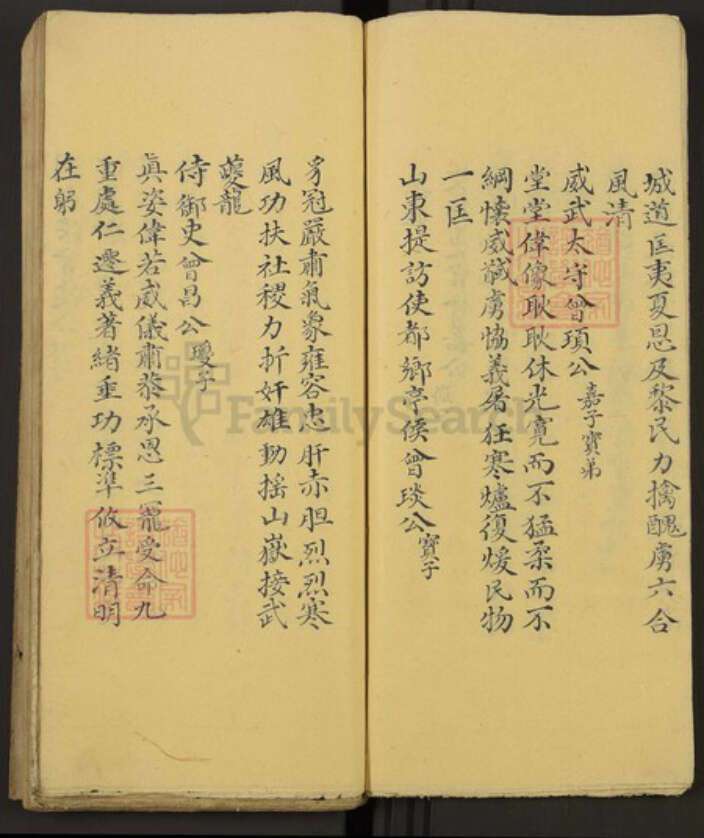 城道匡夷夏恩及黎民力擒醜虏六合
風清
威武太守曾頊公 嘉子寶弟
堂堂偉像耿耿休光寬而不猛柔而不
綱懷威馘虏恊義屠狂寒爐復煖民物
一匡
山東提訪使都鄉亭侯曾琰公 寶子
豸冠嚴肅氣象雍容忠肝赤胆烈烈寒
風功扶社稷力折奸雄動摇山嶽接武
夔龍
侍御史曾昌公 瓊子
真姿偉若威儀肅㳟承恩三寵受命九
重處仁遷義著緒垂功標準攸立清明
在躬
FamilySearch